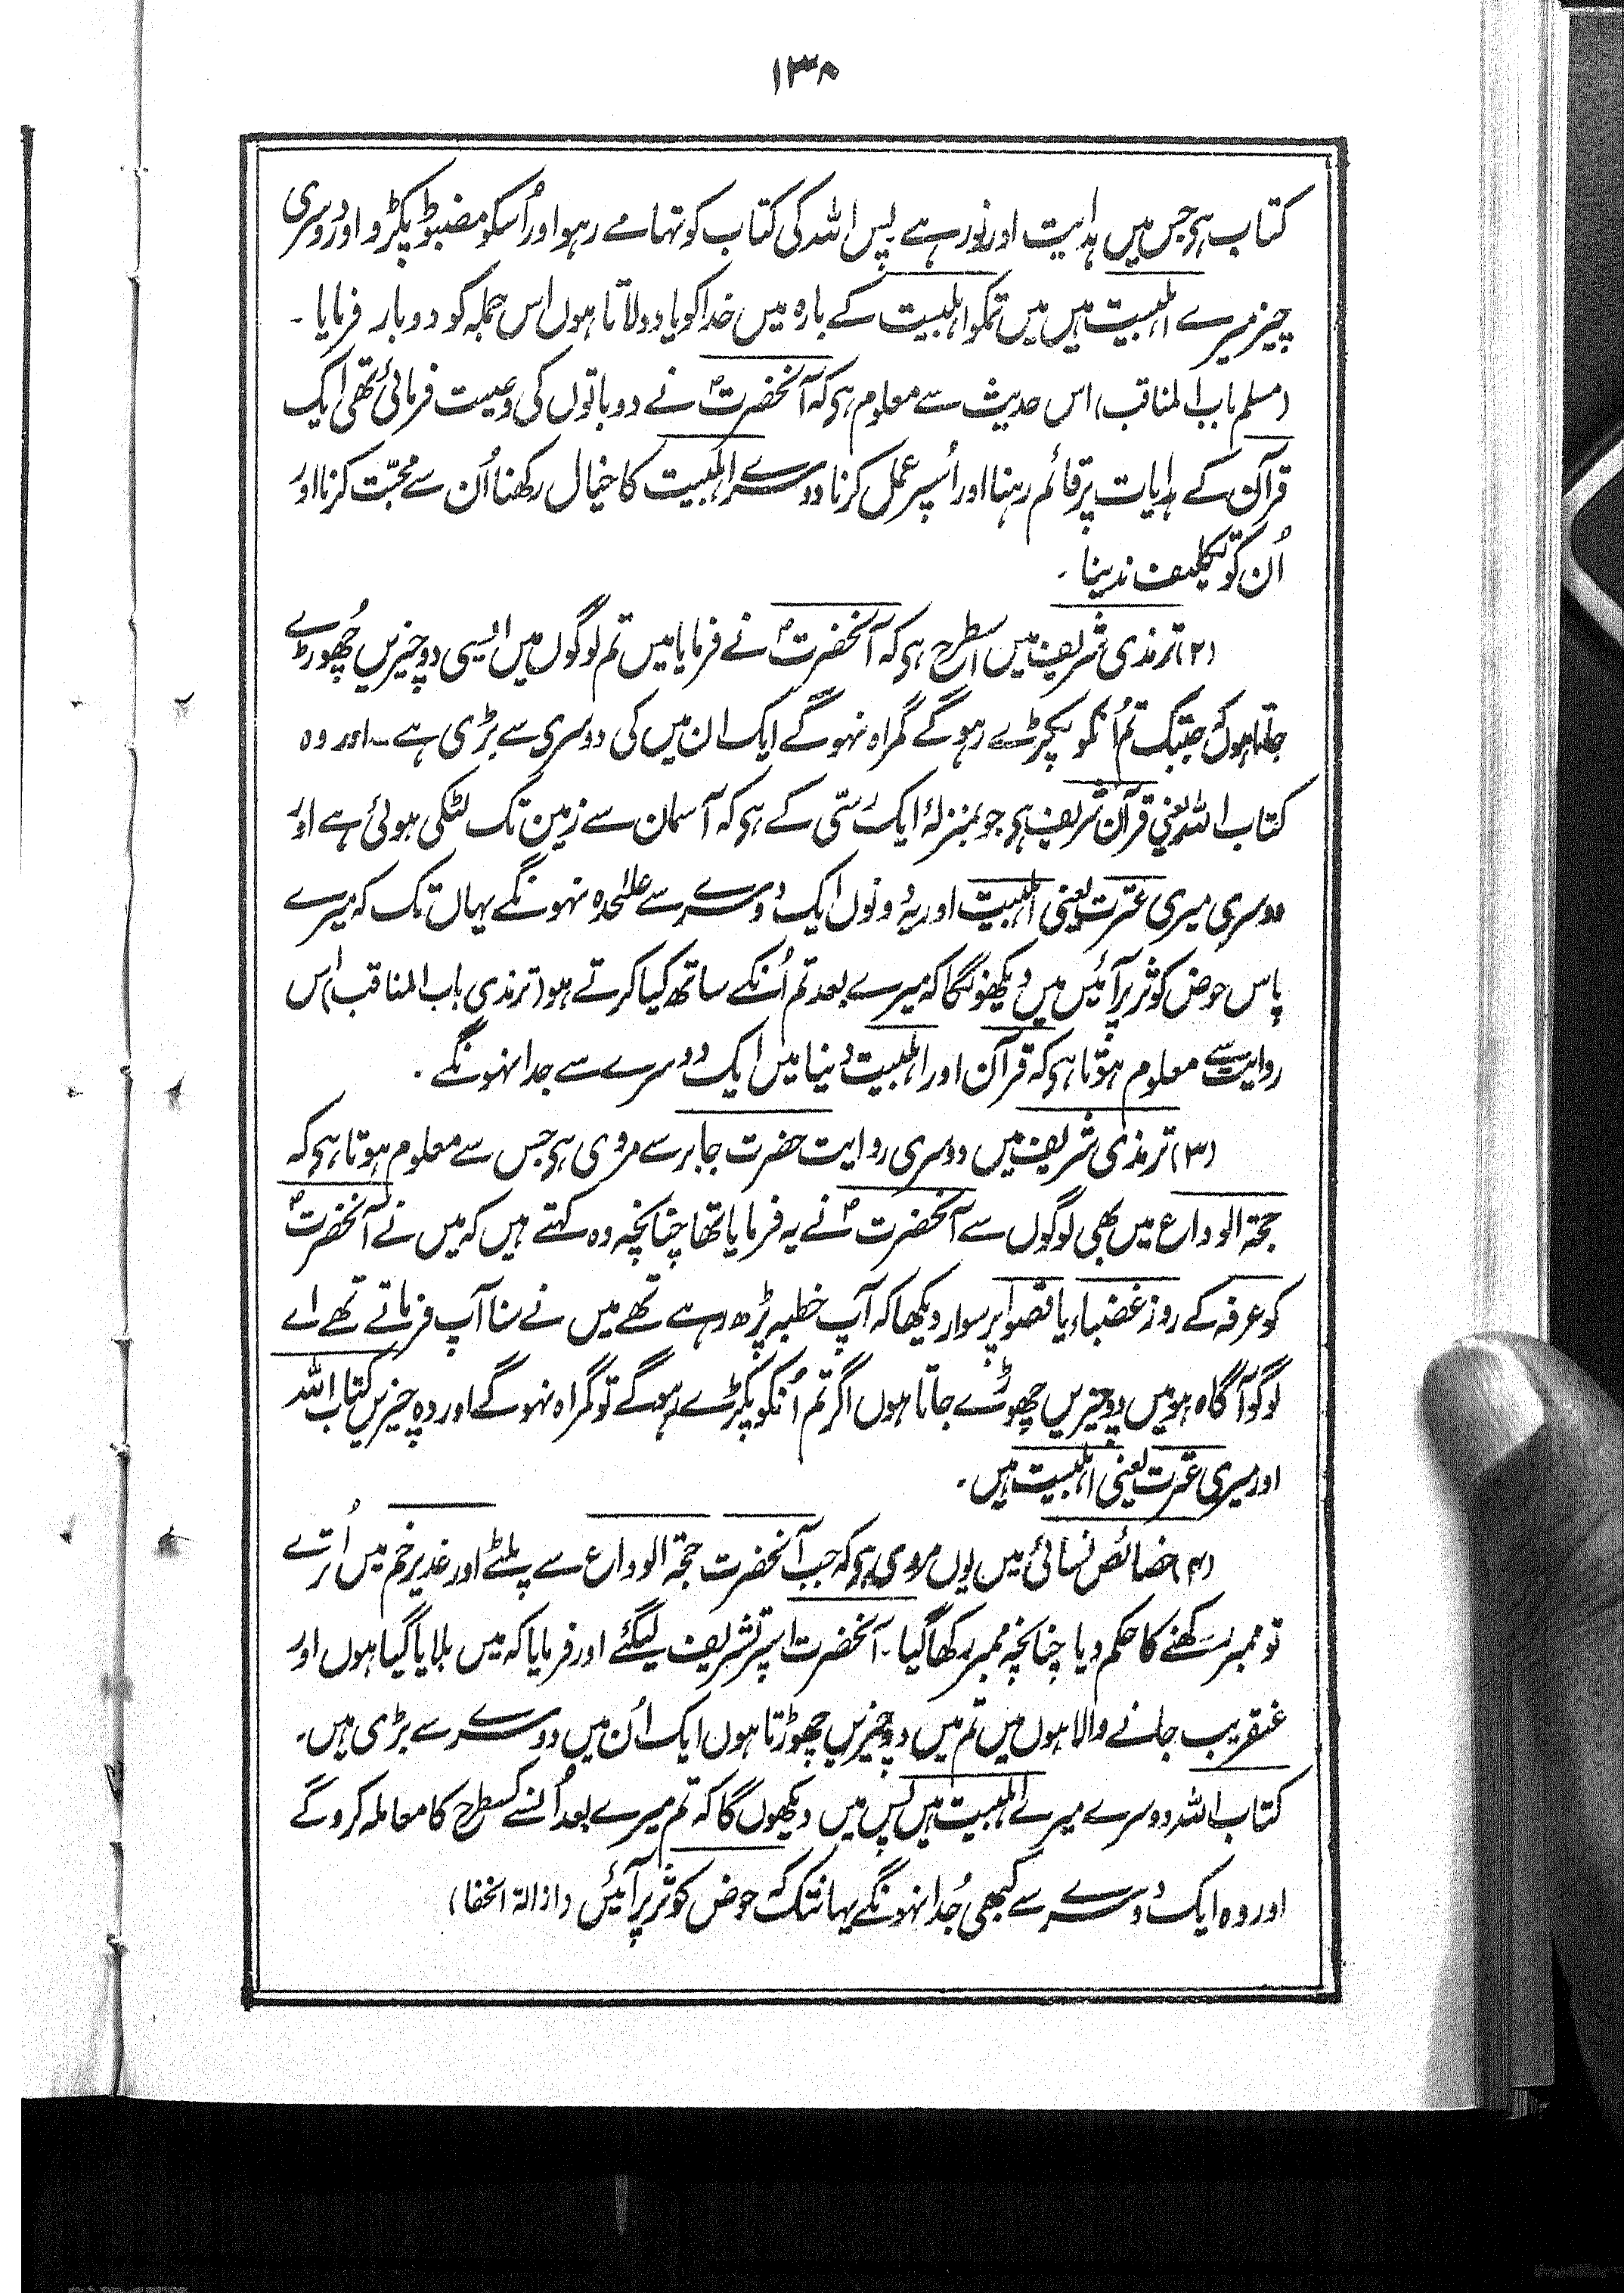 ۱۳۸
کتاب ہی جس میں ہدایت اور نور ہے پس اللہ کی کتاب کو تھامے رہو اور اُسکو مضبوط پکڑو اور دوسری
چیز میرے اہلبیت ہیں میں تمکو اہلبیت کے بارہ میں خدا کو یاد دلاتا ہوں اس جملہ کو دوبار فرمایا ۔
(مسلم باب المناقب) اس حدیث سے معلوم ہی کہ آنحضرتؐ نے دو باتوں کی وصیت فرمائی تھی ایک
قرآن کے ہدایات پر قائم رہنا اور اُسپر عمل کرنا دوسرے اہلبیت کا خیال رکھنا اُن سے محبّت کرنا اور
اُن کو تکلیف ندینا ۔
(۲) ترمذی شریف میں اسطرح ہی کہ آنحضرتؐ نے فرمایا میں تم لوگوں میں ایسی دو چیزیں چھوڑے
جاتا ہوں کہ جبتک تم اُنکو پکڑے رہو گے گمراہ نہو گے ایک ان میں کی دوسری سے بڑی ہے ۔ اور وہ
کتاب اللہ یعنی قرآن شریف ہی جو بمنزلۂ ایک رسّی کے ہی کہ آسمان سے زمین تک لٹکی ہوئی ہے اور
دوسری میری عترت یعنی اہلبیت اور یہ دونوں ایک دوسرے سے علٰحدہ نہونگے یہاں تک کہ میرے
پاس حوض کوثر پر آئیں میں دیکھونگا کہ میرے بعد تم اُنکے ساتھ کیا کرتے ہو (ترمذی باب المناقب) اس
روایت سے معلوم ہوتا ہی کہ قرآن اور اہلبیت دنیا میں ایک دوسرے سے جدا نہونگے ۔
(۳) ترمذی شریف میں دوسری روایت حضرت جابر سے مروی ہی جس سے معلوم ہوتا ہی کہ
حجۃ الوداع میں بھی لوگوں سے آنحضرتؐ نے یہ فرمایا تھا چنانچہ وہ کہتے ہیں کہ میں نے آنحضرتؐ
کو عرفہ کے روز غضباء یا قصوا پر سوار دیکھا کہ آپ خطبہ پڑھ رہے تھے میں نے سنا آپ فرماتے تھے اے
لوگو آگاہ ہو میں دو چیزیں چھوڑے جاتا ہوں اگر تم اُنکو پکڑے رہو گے تو گمراہ نہو گے اور وہ چیزیں کتاب اللہ
اور میری عترت یعنی اہلبیت ہیں ۔
(۴) خصائص نسائی میں یوں مروی ہی کہ جب آنحضرت حجۃ الوداع سے پلٹے اور غدیر خم میں اُترے
تو ممبر رکھنے کا حکم دیا چنانچہ ممبر رکھا گیا ۔ آنحضرت اسپر تشریف لیگئے اور فرمایا کہ میں بلایا گیا ہوں اور
عنقریب جانے والا ہوں میں تم میں دو چیزیں چھوڑتا ہوں ایک اُن میں دوسرے سے بڑی ہیں ۔
کتاب اللہ دوسرے میرے اہلبیت ہیں پس میں دیکھوں گا کہ تم میرے بعد اُنسے کسطرح کا معاملہ کرو گے
اور وہ ایک دوسرے سے کبھی جُدا نہونگے یہانتک کہ حوض کوثر پر آئیں (ازالۃ الخفا)